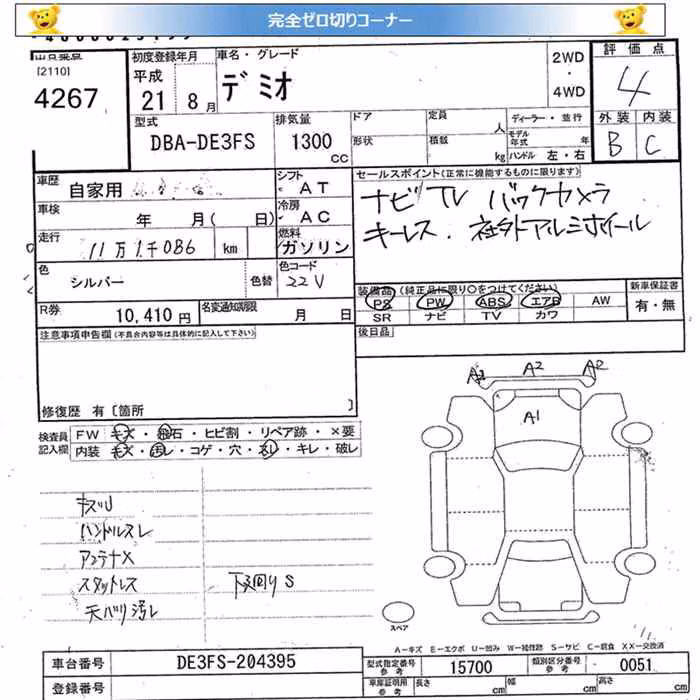 完全ゼロ切りコーナー
出品番号
[2110]
4267
初度登録年月
平成
21 8月
車名・グレード
デミオ
2WD
・
4WD
評価点
4
外装 内装
B C
型式
DBA-DE3FS
排気量
1300
CC
ドア
形状
定員
人
積載
kg
ディーラー・並行
モデル年式 年
ハンドル 左・右
車歴
自家用
シフト
AT
車検
年 月( 日)
冷房
AC
走行
11万1千086 km
燃料
ガソリン
色
シルバー
色替
色コード
22V
R券
10,410円
名変通知期限
月 日
セールスポイント(正常に機能するものに限ります)
ナビ TV バックカメラ
キーレス. 社外アルミホイール
装備品(純正品に限り○をつけてください)
PS PW ABS エアB AW
SR ナビ TV カワ
新車保証書
有・無
後日品
注意事項申告欄(不具合内容等は具体的に記入して下さい)
修復歴 有〔箇所 〕
検査員記入欄
FW キズ・飛石・ヒビ割・リペア跡・×要
内装 キズ・汚レ・コゲ・穴・スレ・キレ・破レ
キズU
ハンドルスレ
アンテナX
スタットレス
天バリ汚レ
下廻りS
A2 A2 A2
A1
スペア
A-キズ E-エクボ U-凹み W-補修跡 S-サビ C-腐食 XX-交換済
車台番号
DE3FS-204395
登録番号
型式指定番号
参考
15700
類別区分番号
参考
0051
車庫証明用
参考
長さ cm
幅 cm
高さ cm